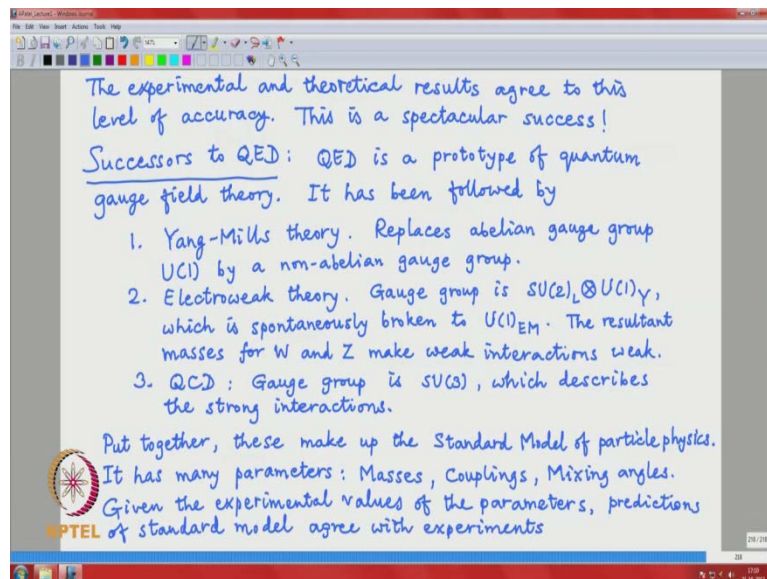 APatel_Lecture1 - Windows Journal
File Edit View Insert Actions Tools Help
The experimental and theoretical results agree to this
level of accuracy. This is a spectacular success!
Successors to QED: QED is a prototype of quantum
gauge field theory. It has been followed by
1. Yang-Mills theory. Replaces abelian gauge group
U(1) by a non-abelian gauge group.
2. Electroweak theory. Gauge group is SU(2)_L⊗U(1)_Y,
which is spontaneously broken to U(1)_EM. The resultant
masses for W and Z make weak interactions weak.
3. QCD: Gauge group is SU(3), which describes
the strong interactions.
Put together, these make up the Standard Model of particle physics.
It has many parameters: Masses, Couplings, Mixing angles.
Given the experimental values of the parameters, predictions
of standard model agree with experiments
NPTEL
218/218
218